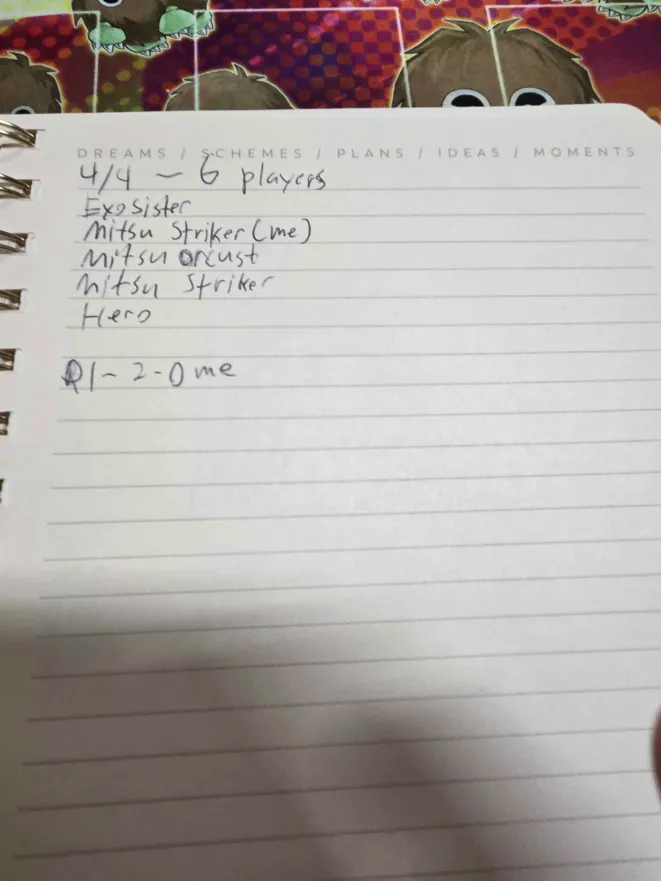 DREAMS / SCHEMES / PLANS / IDEAS / MOMENTS
4/4 - 6 players
Exosister
Mitsu Striker (me)
Mitsu orcust
Mitsu Striker
Hero
R1- 2-0 me